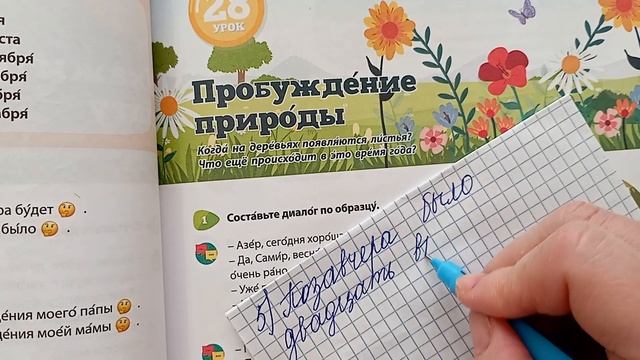 я
ста
ября́
бря́
бря́
абря́
ра бу́дет
бы́ло
де́ния моего́ па́пы
де́ния мое́й ма́мы
28
УРОК
Пробужде́ние
приро́ды
Когда́ на дере́вьях появля́ются ли́стья?
Что ещё происхо́дит в э́то вре́мя го́да?
1 Соста́вьте диало́г по образцу́.
– Азе́р, сего́дня
– Да, Сами́р,
о́чень ра́но.
– Уже́
5) Позавчера было
двадцать